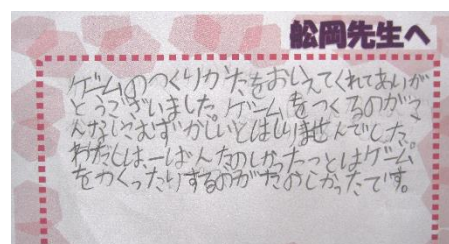 舩岡先生へ
ゲームのつくりかたをおしえてくれてありが
とうございました。ゲームをつくるのがこ
んなにむずかしいとはしりませんでした。
わたしは一ばんたのしかったっとはゲーム
をかくったりするのがたのしかったです。